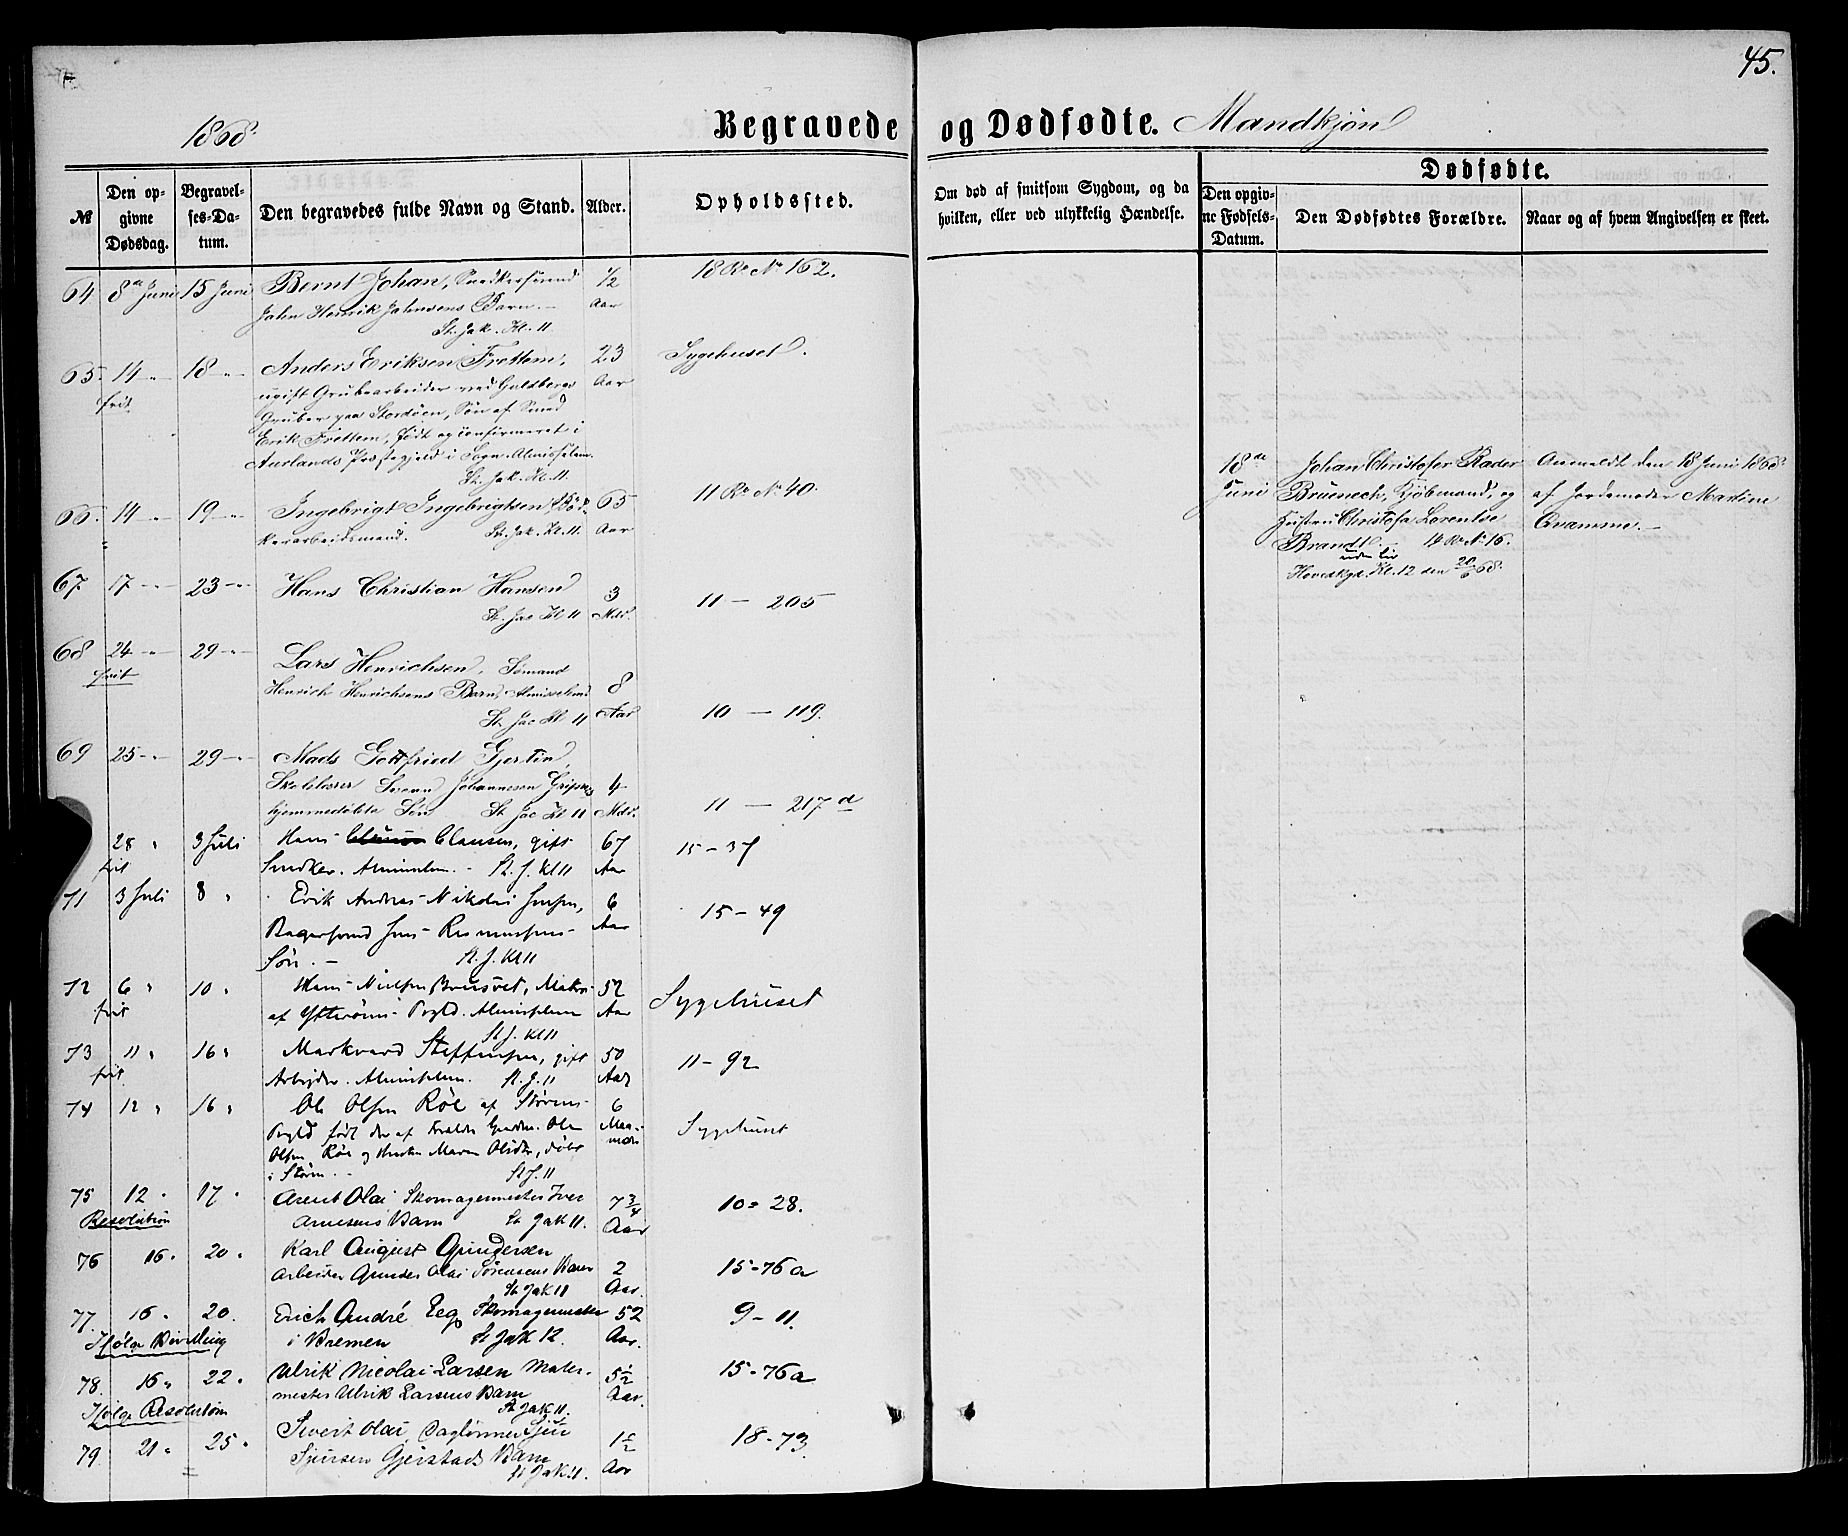 45.
1868.
Begravede og Dødfødte. Mandkjøn
№
Den op-
givne
Dødsdag.
Begravel-
ses-Da-
tum.
Den begravedes fulde Navn og Stand.
Alder.
Opholdssted.
Om død af smitsom Sygdom, og da
hvilken, eller ved ulykkelig Hændelse.
Dødfødte.
Den opgiv-
ne Fødsels-
Datum.
Den Dødfødtes Forældre.
Naar og af hvem Angivelsen er skeet.
64 8de Juni 15 Juni Bernt Johan, Snedkersvend 1/2 18 R. No 162.
John Henrik Johnsens Barn. Aar
St. Jak. Kl. 11
65. 14 " 18 " Anders Eriksen Frettem, 23 Sygehuset.
frit ugift Grubearbeider ved Guldbergs Aar
Gruber paa Stordøen, Søn af Smed
Erik Frettem, født og confirmeret i
Aurlands Præstegjeld i Sogn. Almisselem.
St. Jak. Kl. 11.
66. 14 " 19 " Ingebrigt Ingebrigtsen, Bød- 65 11 R. No 40.
kerarbeidsmand. St. Jak. Kl. 11. Aar
67 17 " 23 " Hans Christian Hansen 3 11 — 205
St. Jac Kl 11 Mdr.
68 24 " 29 " Lars Henrichsen, Sømand
frit Henrich Henrichsens Barn, Almisselem 8
St. Jac Kl 11 Aar 10 — 119.
69 25 " 29 " Mads Gottfried Gjertin,
Skolelærer Svenn Johannesen 4
hjemmedøbte Søn St. Jac Kl 11 Mdr. 11 — 217 d
28 " 3 Juli Hans Clausen, gift 67 15 - 37
frit Snedker. Almisselem. St. J. Kl 11 Aar
71 3 Juli 8 " Erik Andreas Nikolai Jensen, 6 15 - 49
Bagersvend Jens Rasmussens Aar
Søn. St. J. Kl 11
72 6 " 10 " Hans Nielsen 52 Sygehuset
frit af Ytterøens Prgld. Almisselem Aar
St J. Kl 11
73 11 " 16 " Markvard Steffensen, gift 50 11 - 92
frit Arbeider. Almisselem. St. J. 11 Aar
74 12 " 16 " Ole Olsen Röe af Størens 6 Sygehuset
Prgld født der af Forældre Ole Maa-
Olsen Röe og Hustru Maren Olsdtr, døbt neder
i Støren. St J. 11
75 12 " 17 " Arent Olai Skomagermester Iver 7 3/4 10 = 28.
Resolution Arnesens Barn St Jak 11. Aar
76 16 " 20 " Karl August Gundersen
Arbeider Gunder Olai Sørensens Barn 2 15 - 76 a
St Jak 11 Aar.
77 16 " 20. Erich André Eeg Skomagermester 52 9 - 11.
Ifølge Bevilling i Bremen St Jak 12. Aar.
78. 16 " 22 " Ulrik Nicolai Larsen Maler- 5 1/2 15 - 76 a
mester Ulrik Larsens Barn Aar.
Ifølge Resolution St Jak 11.
79. 21 " 25 " Sivert Olai, Daglønner Sjur 1 1/2 18 - 73
Sjursen Gjerstads Barn Aar
St Jak 11.
18de Johan Christofer Rader Anmeldt den 18 Juni 1868
Juni Bruenech, Kjøbmand, og af Jordemoder Martine
Hustru Christofa Lorentse Qvamme.
Brandt. 14 R. No 16.
uden Liv
Hovedkgd. Kl. 12 den 20/6 68.